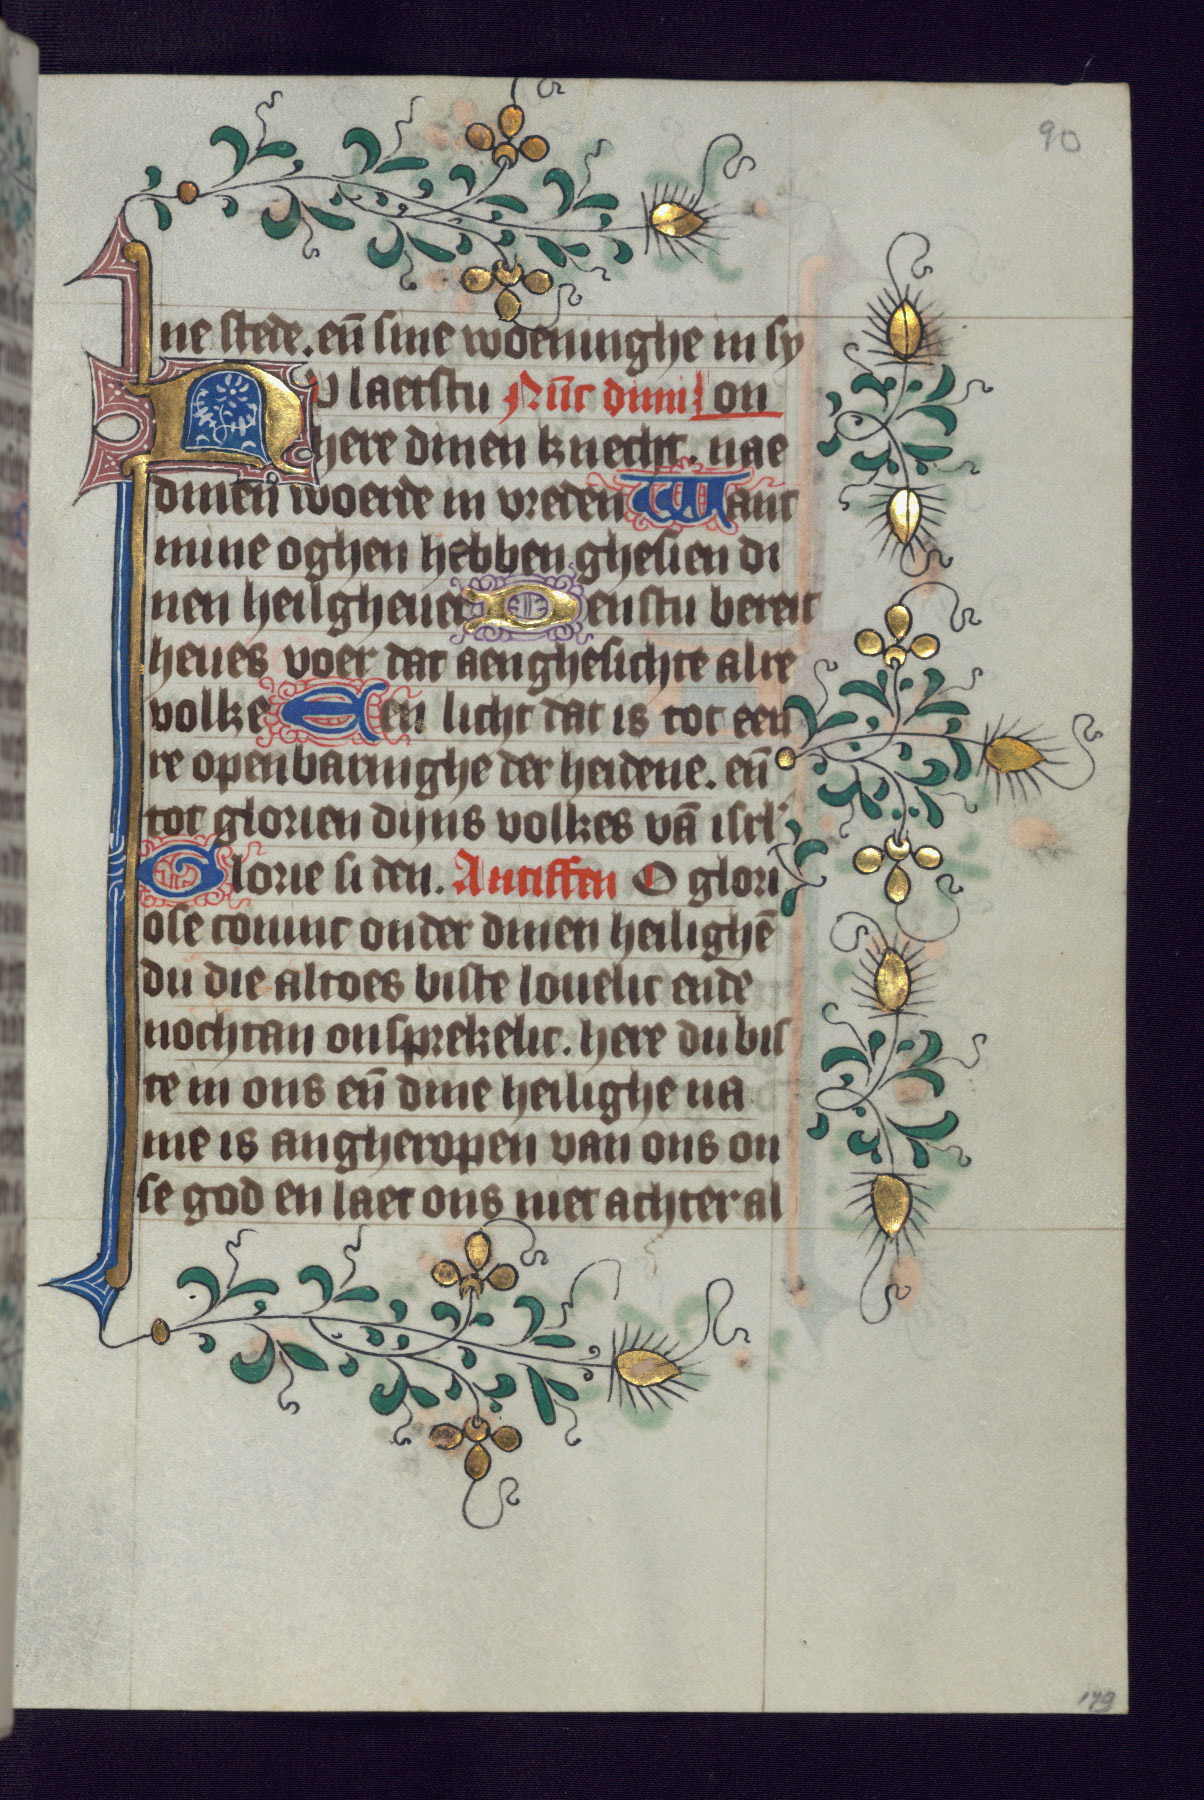 90
ne stede. eñ sine woeninghe in sy
NV laetstu Nūc dimi on
here dinen knecht. nae
dinen woerde in vreden Want
mine oghen hebben ghesien di
nen heilgheuer Den stu bereit
heues voer dat aenghesichte alre
volke Een licht dat is tot een
re openbaringhe der heidene. eñ
tot glorien dijns volkes vā isrl
Glorie si den. Antiffen O glori
ose comint onder dinen heilighē
du die altoes biste louelic ende
nochtan onsprekelic. here du bis
te in ons eñ dine heilighe na
me is angheropen van ons on
se god en laet ons niet achter al
179